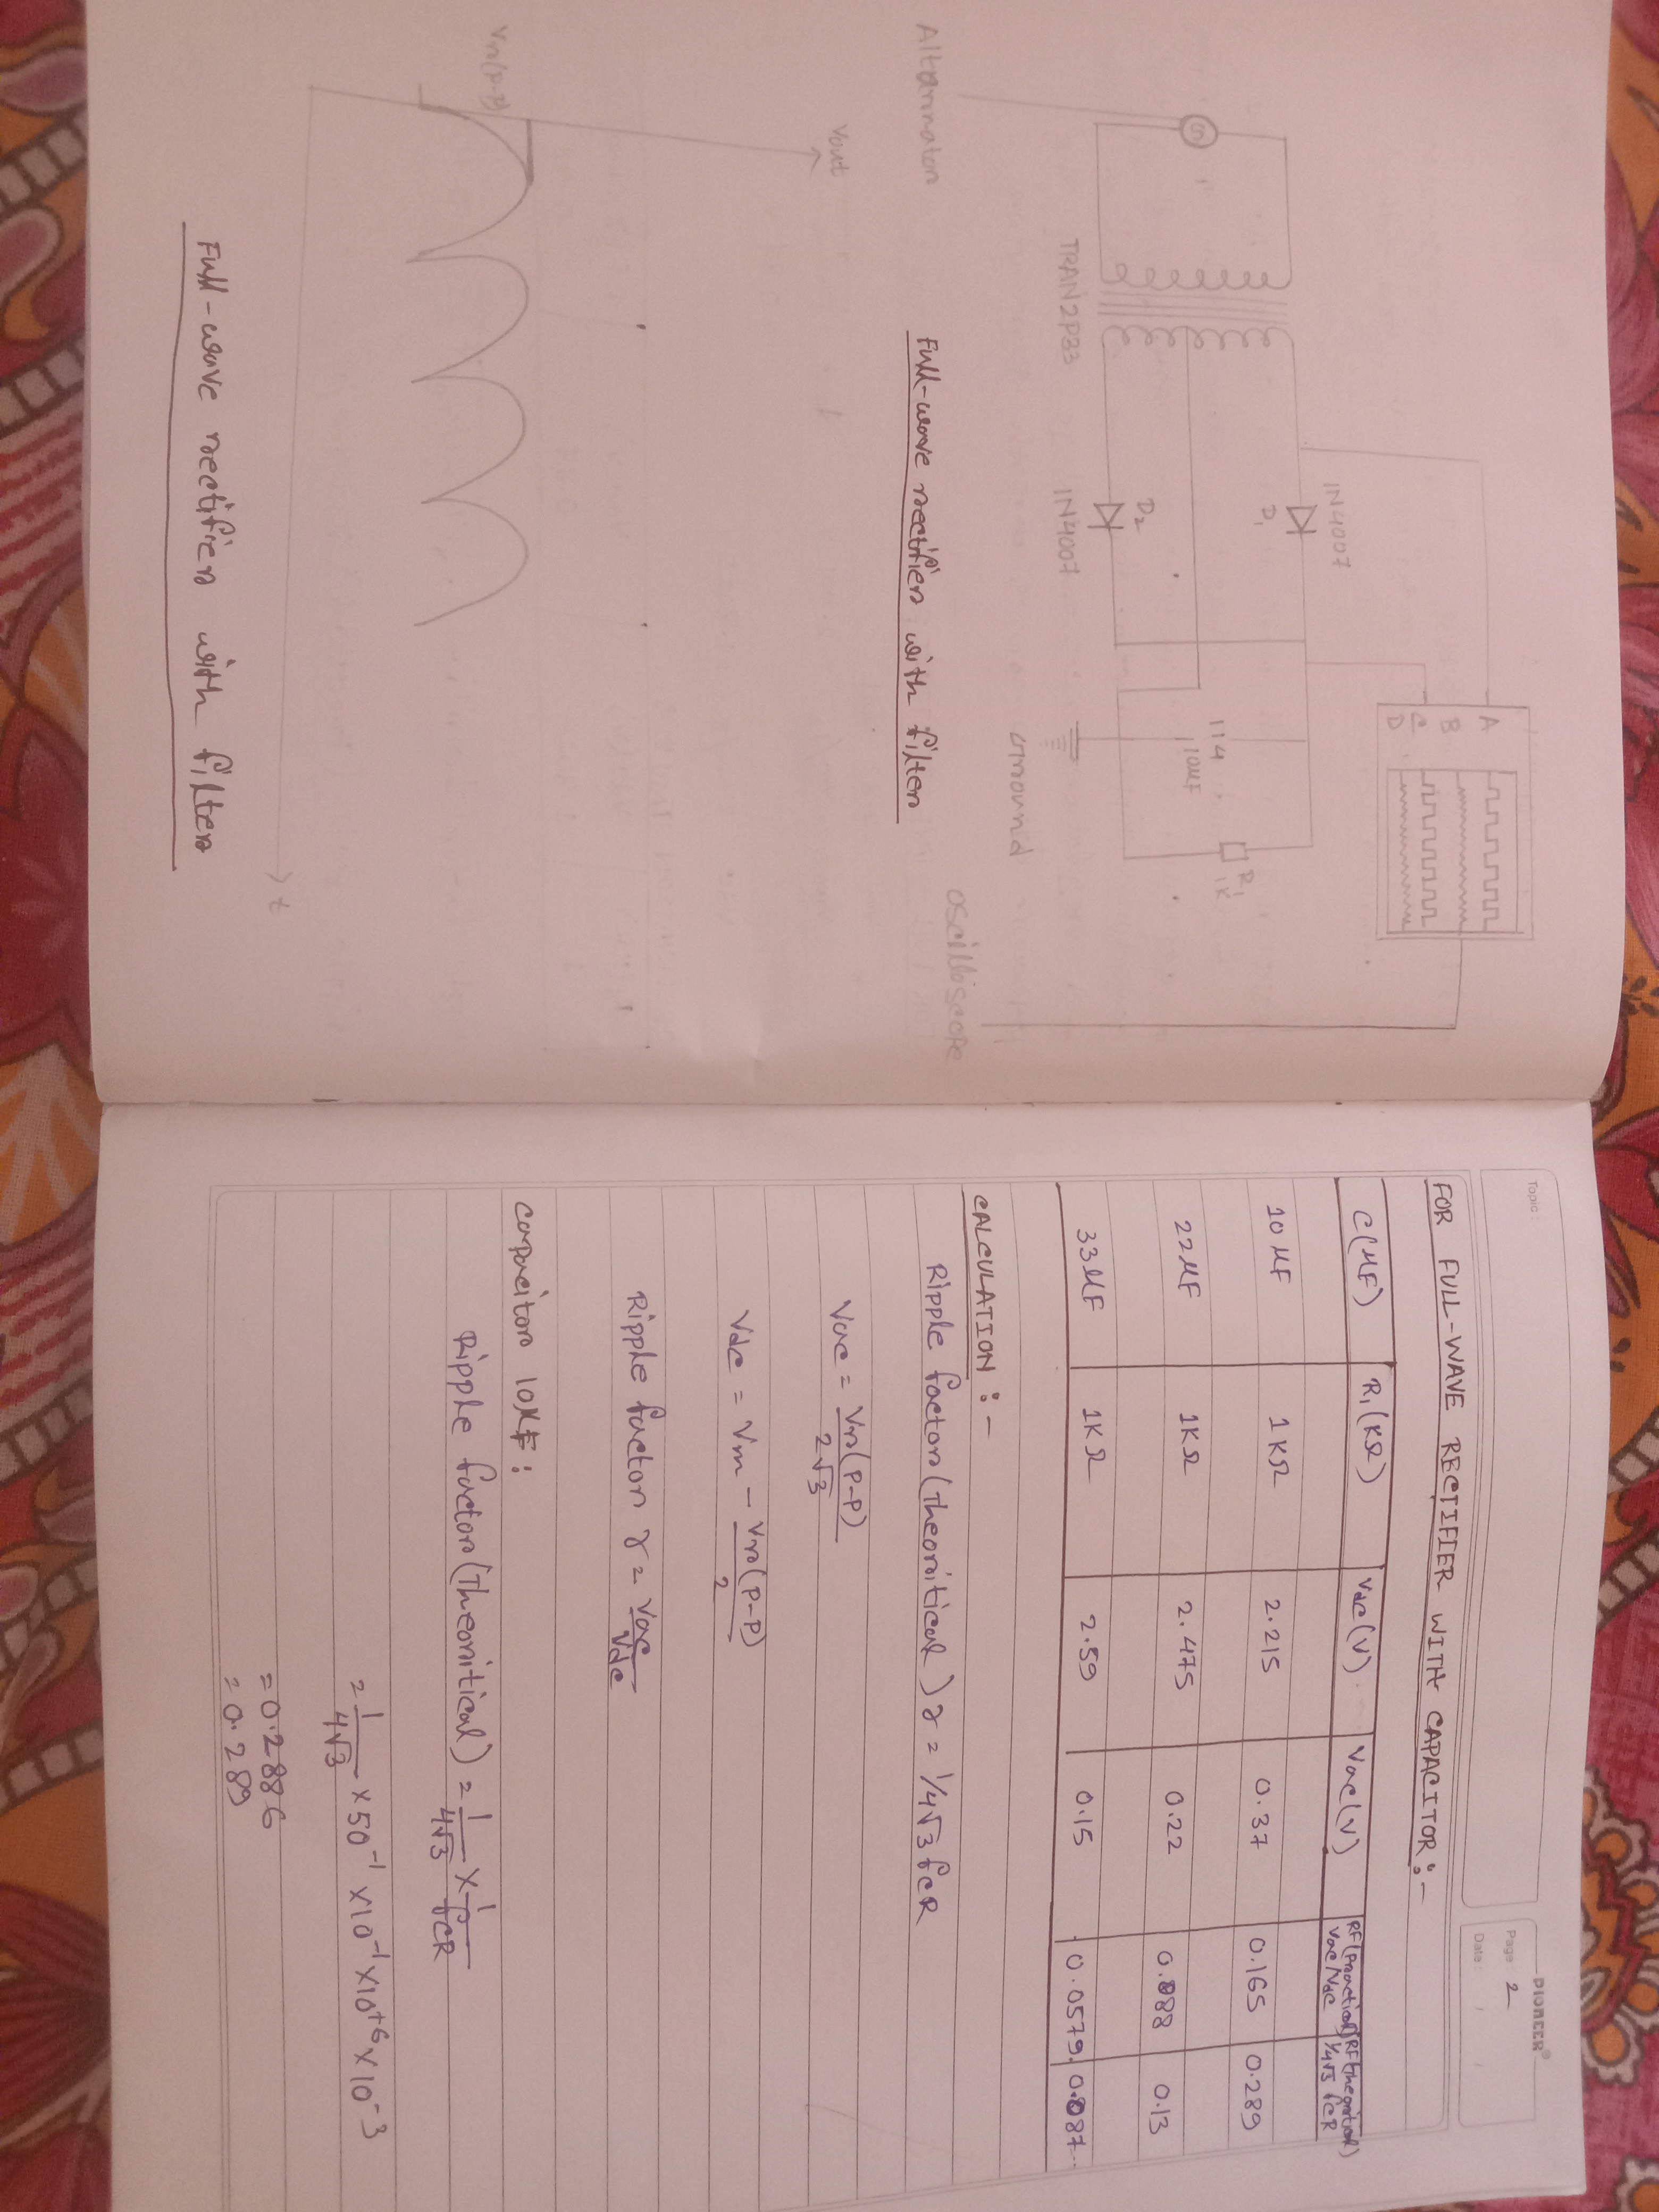 Alternator
TRAN2P33
IN4007
D1
D2
IN4007
A
B
C
D
114
10µF
R1
1K
Ground
OSCILLOSCOPE
Full-wave rectifier with filter
Vout
Vr(P-P)
t
Full-wave rectifier with filter
PIONEER®
Topic :
Page : 2
Date :
FOR FULL-WAVE RECTIFIER WITH CAPACITOR:-
C(µF) R1(KΩ) Vdc(V) Vac(V) RF(Practical) Vac/Vdc RF(Theoritical) 1/4√3 fcR
10µF 1KΩ 2.215 0.37 0.165 0.289
22µF 1KΩ 2.475 0.22 0.088 0.13
33µF 1KΩ 2.59 0.15 0.0579 0.087
CALCULATION :-
Ripple factor (Theoritical) γ = 1/4√3 fcR
Vac = Vr(P-P)/2√3
Vdc = Vm - Vr(P-P)/2
Ripple factor γ = Vac/Vdc
Capacitor 10µF :
Ripple factor (Theoritical) = 1/4√3 × 1/fCR
= 1/4√3 × 50⁻¹ × 10⁻¹ × 10⁺⁶ × 10⁻³
= 0.2886
= 0.289